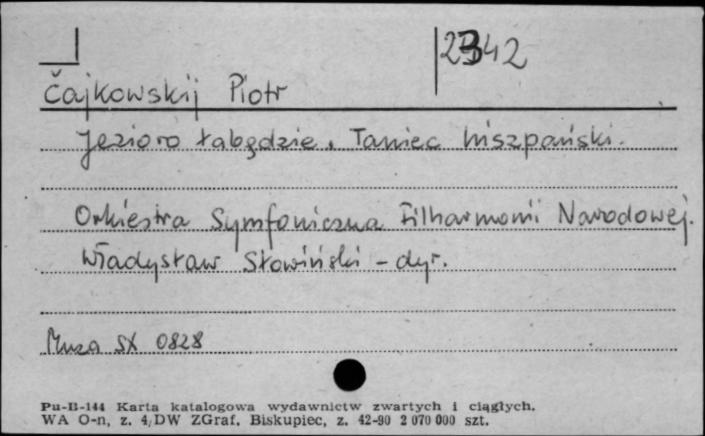 Čajkowskij Piotr
Jezioro łabędzie. Taniec hiszpański.
Orkiestra Symfoniczna Filharmonii Narodowej.
Władysław Słowiński - dyr.
Muza SX 0828
Pu-B-144 Karta katalogowa wydawnictw zwartych i ciągłych.
WA O-n, z. 4/DW ZGraf. Biskupiec, z. 42-90 2 070 000 szt.